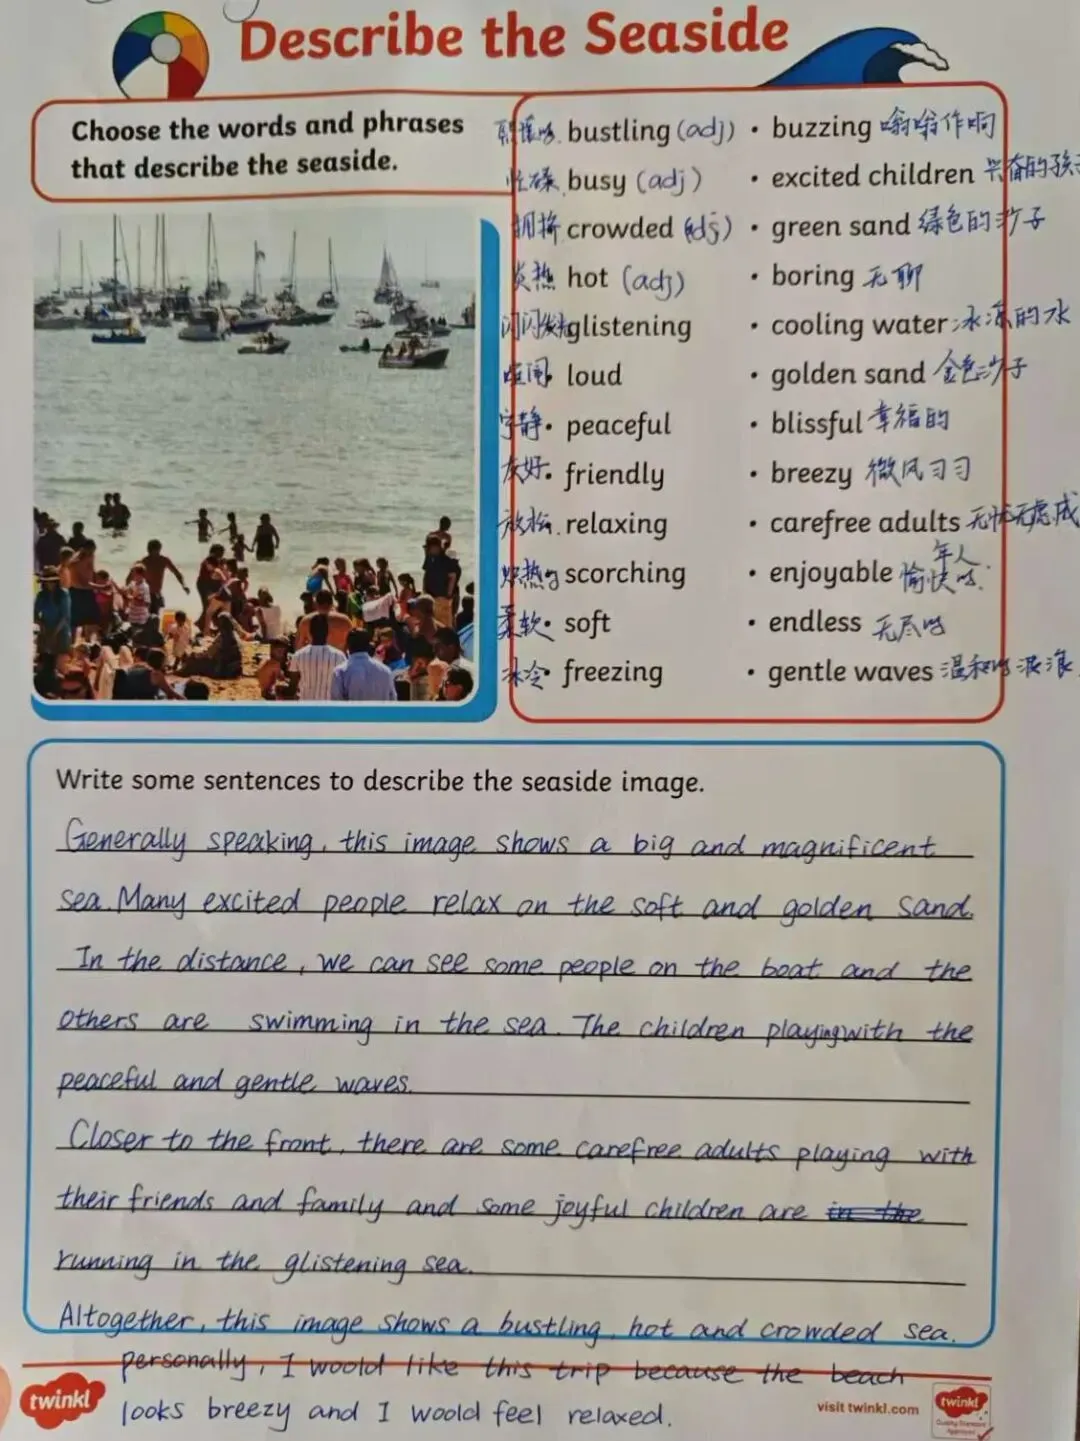 Describe the Seaside
Choose the words and phrases
that describe the seaside.
bustling (adj)
busy (adj)
拥挤 crowded (adj)
炎热 hot (adj)
glistening
loud
宁静 • peaceful
友好 • friendly
放松 relaxing
scorching
柔软 • soft
冰冷 • freezing
• buzzing 嗡嗡作响
• excited children 兴奋的孩子
• green sand 绿色的沙子
• boring 无聊
• cooling water 冰凉的水
• golden sand 金色沙子
• blissful 幸福的
• breezy 微风习习
• carefree adults 无忧无虑成
年人
• enjoyable 愉快的
• endless 无尽的
• gentle waves 温和的波浪
Write some sentences to describe the seaside image.
Generally speaking, this image shows a big and magnificent
sea. Many excited people relax on the soft and golden sand.
In the distance, we can see some people on the boat and the
others are swimming in the sea. The children playing with the
peaceful and gentle waves.
Closer to the front, there are some carefree adults playing with
their friends and family and some joyful children are in the
running in the glistening sea.
Altogether, this image shows a bustling, hot and crowded sea.
personally, I woold like this trip because the beach
looks breezy and I woold feel relaxed.
twinkl
visit twinkl.com
twinkl
Quality Standard
Approved